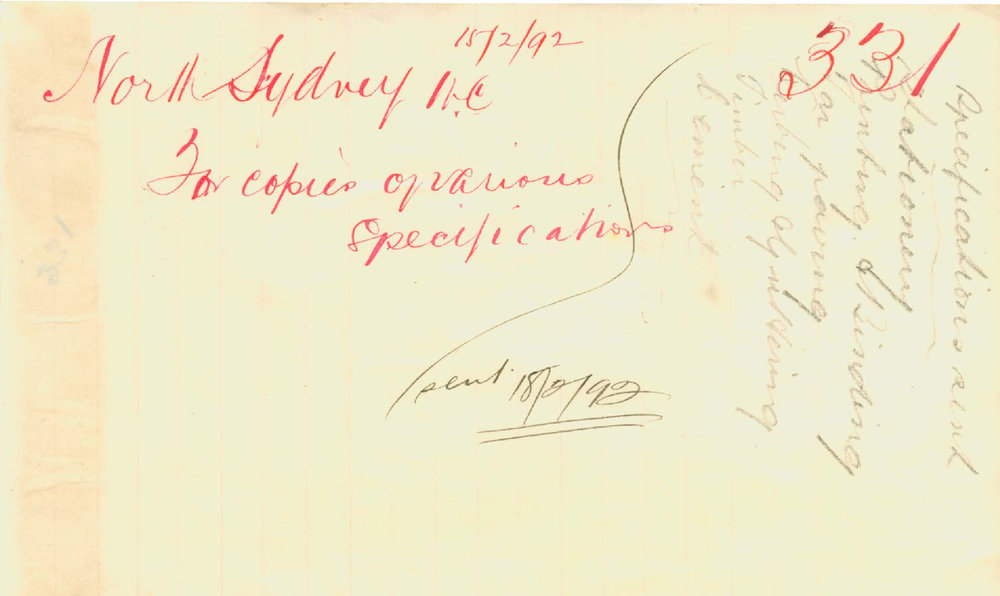 15/2/92
331
North Sydney B.C
For copies of various
Specifications
sent 18/2/92
Specifications sent
Stationery
Printing & Binding
Tar paving
Kerbing & guttering
Timber
Cement